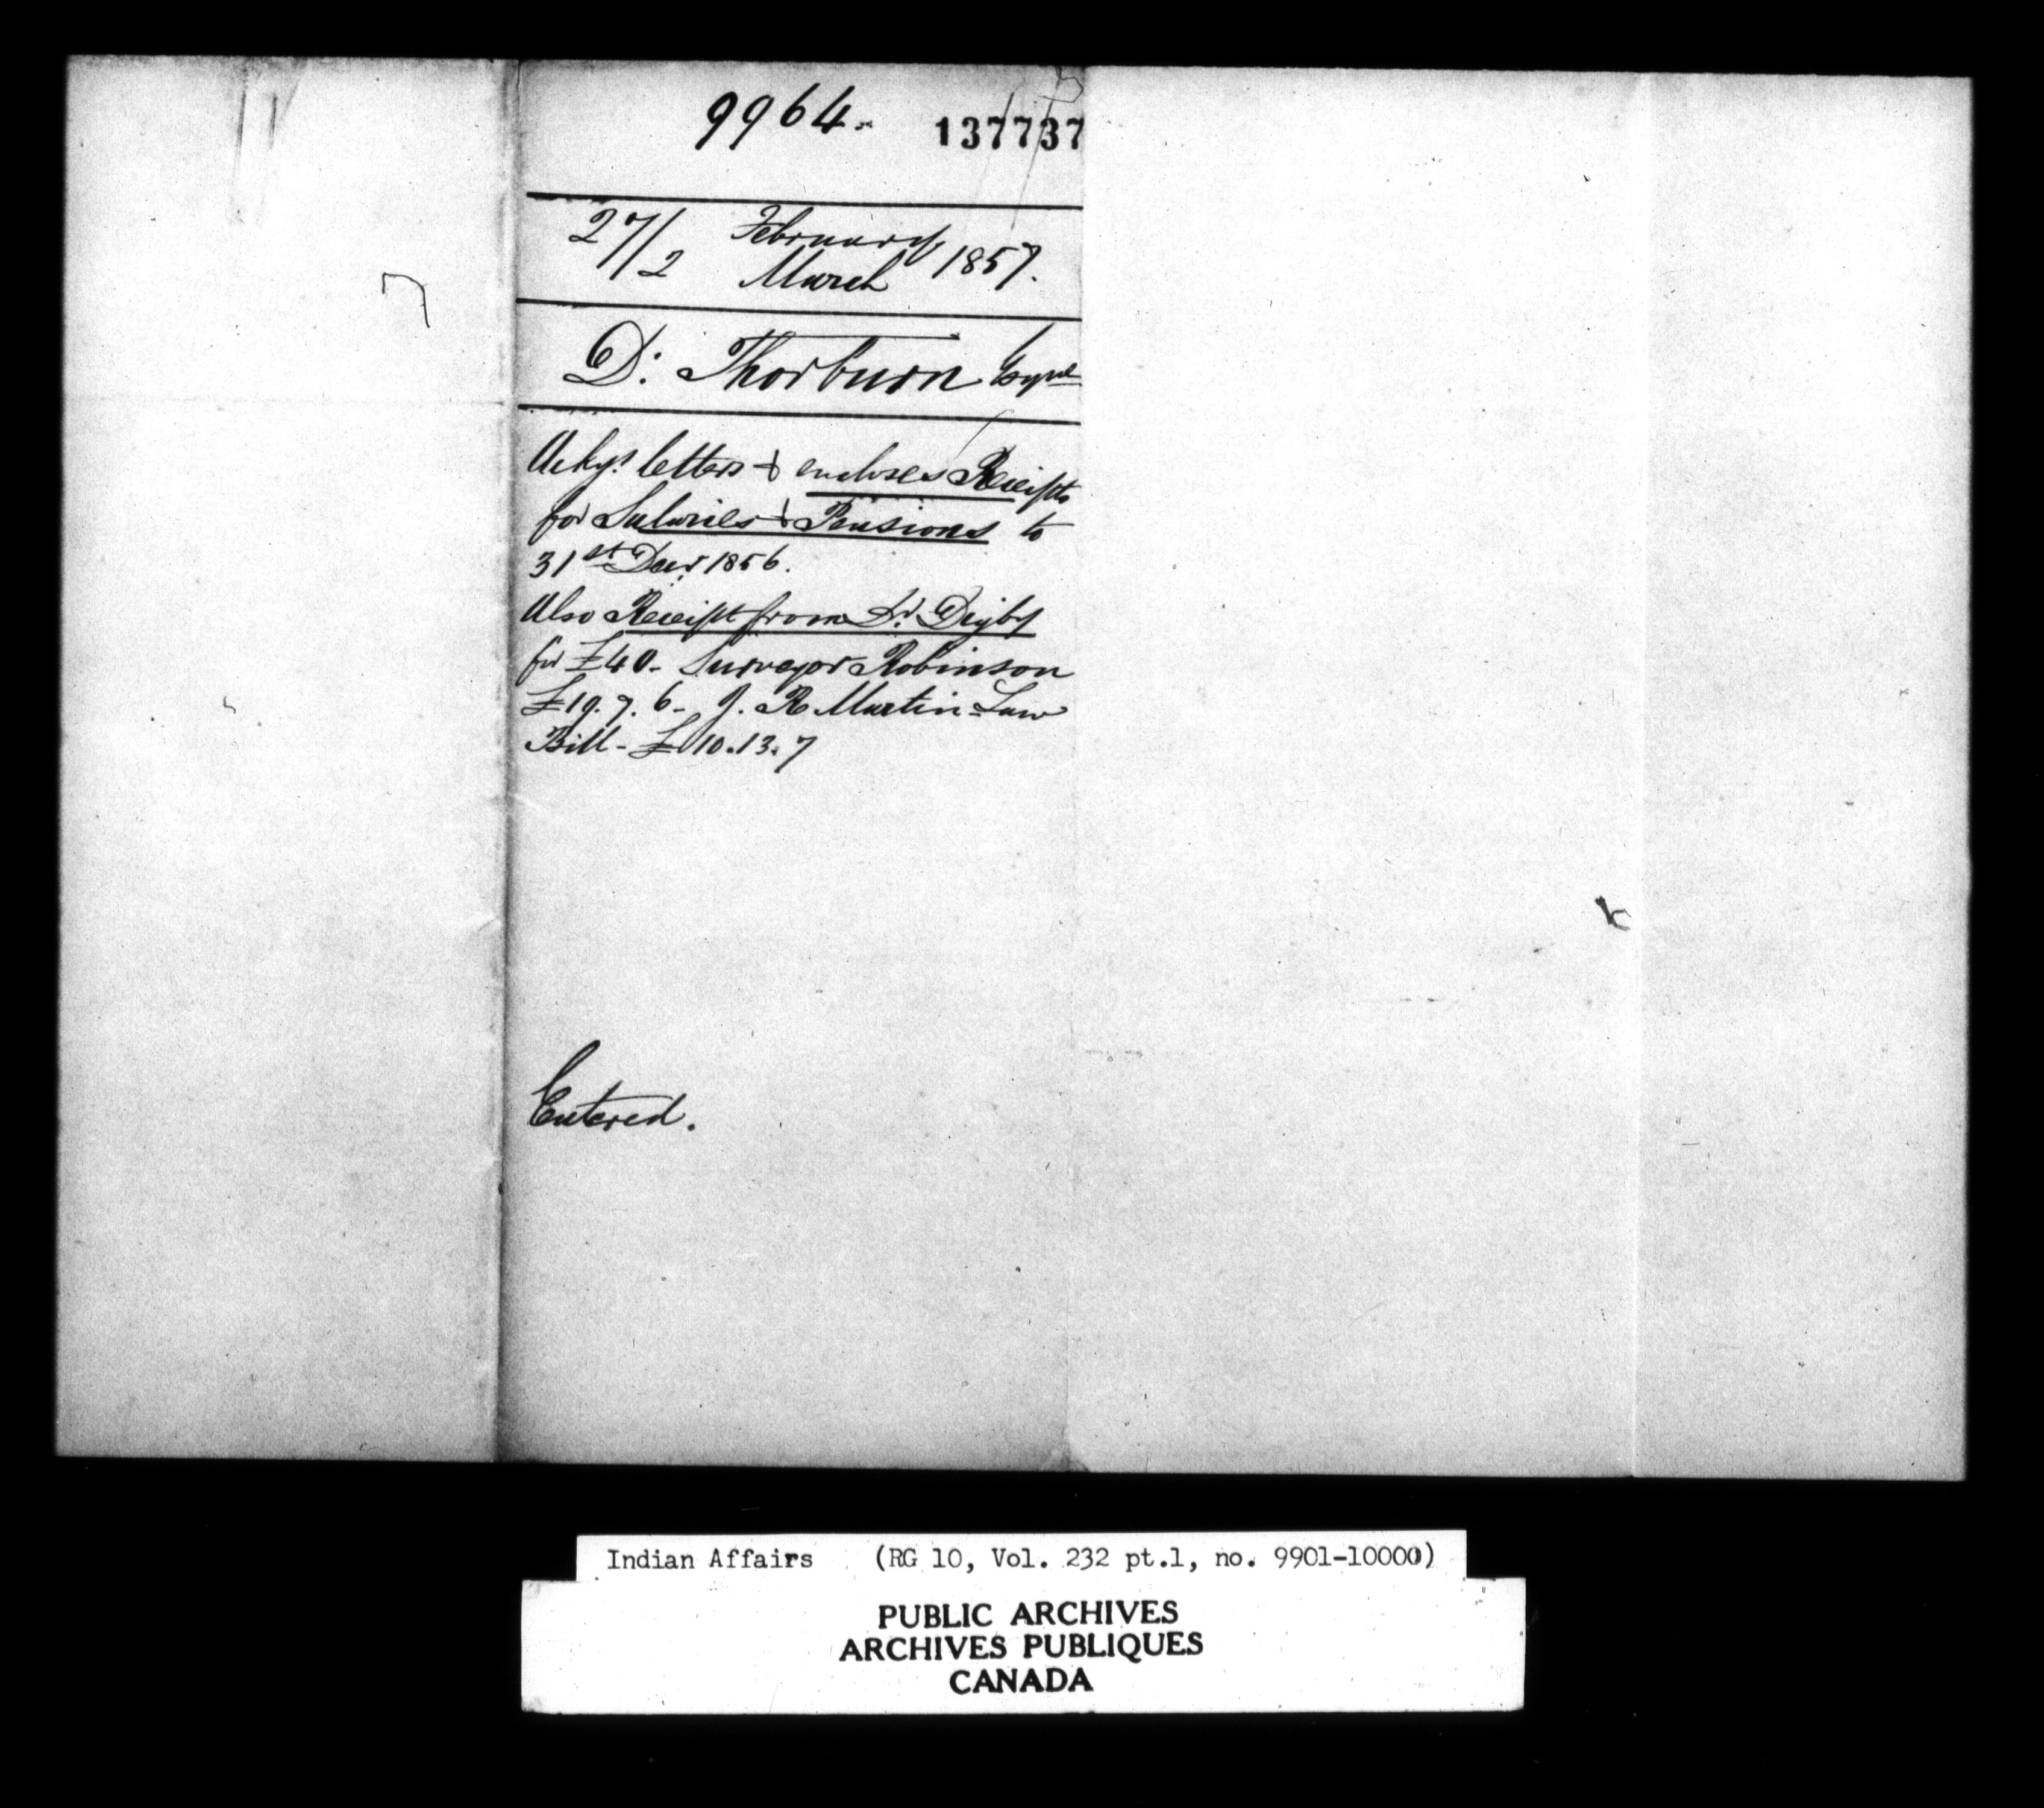 9964. 137737
27/2 February March 1857.
D. Thorburn Esqre
Ackgs letters & encloses Receipts
for Salaries & Pensions to
31st Decr 1856.
Also Receipt from Dr. Digby
for £40. Surveyor Robinson
£19. 7. 6 - J. R Martin - Law
Bill - £10. 13. 7
Entered.
Indian Affairs (RG 10, Vol. 232 pt.1, no. 9901-10000)
PUBLIC ARCHIVES
ARCHIVES PUBLIQUES
CANADA